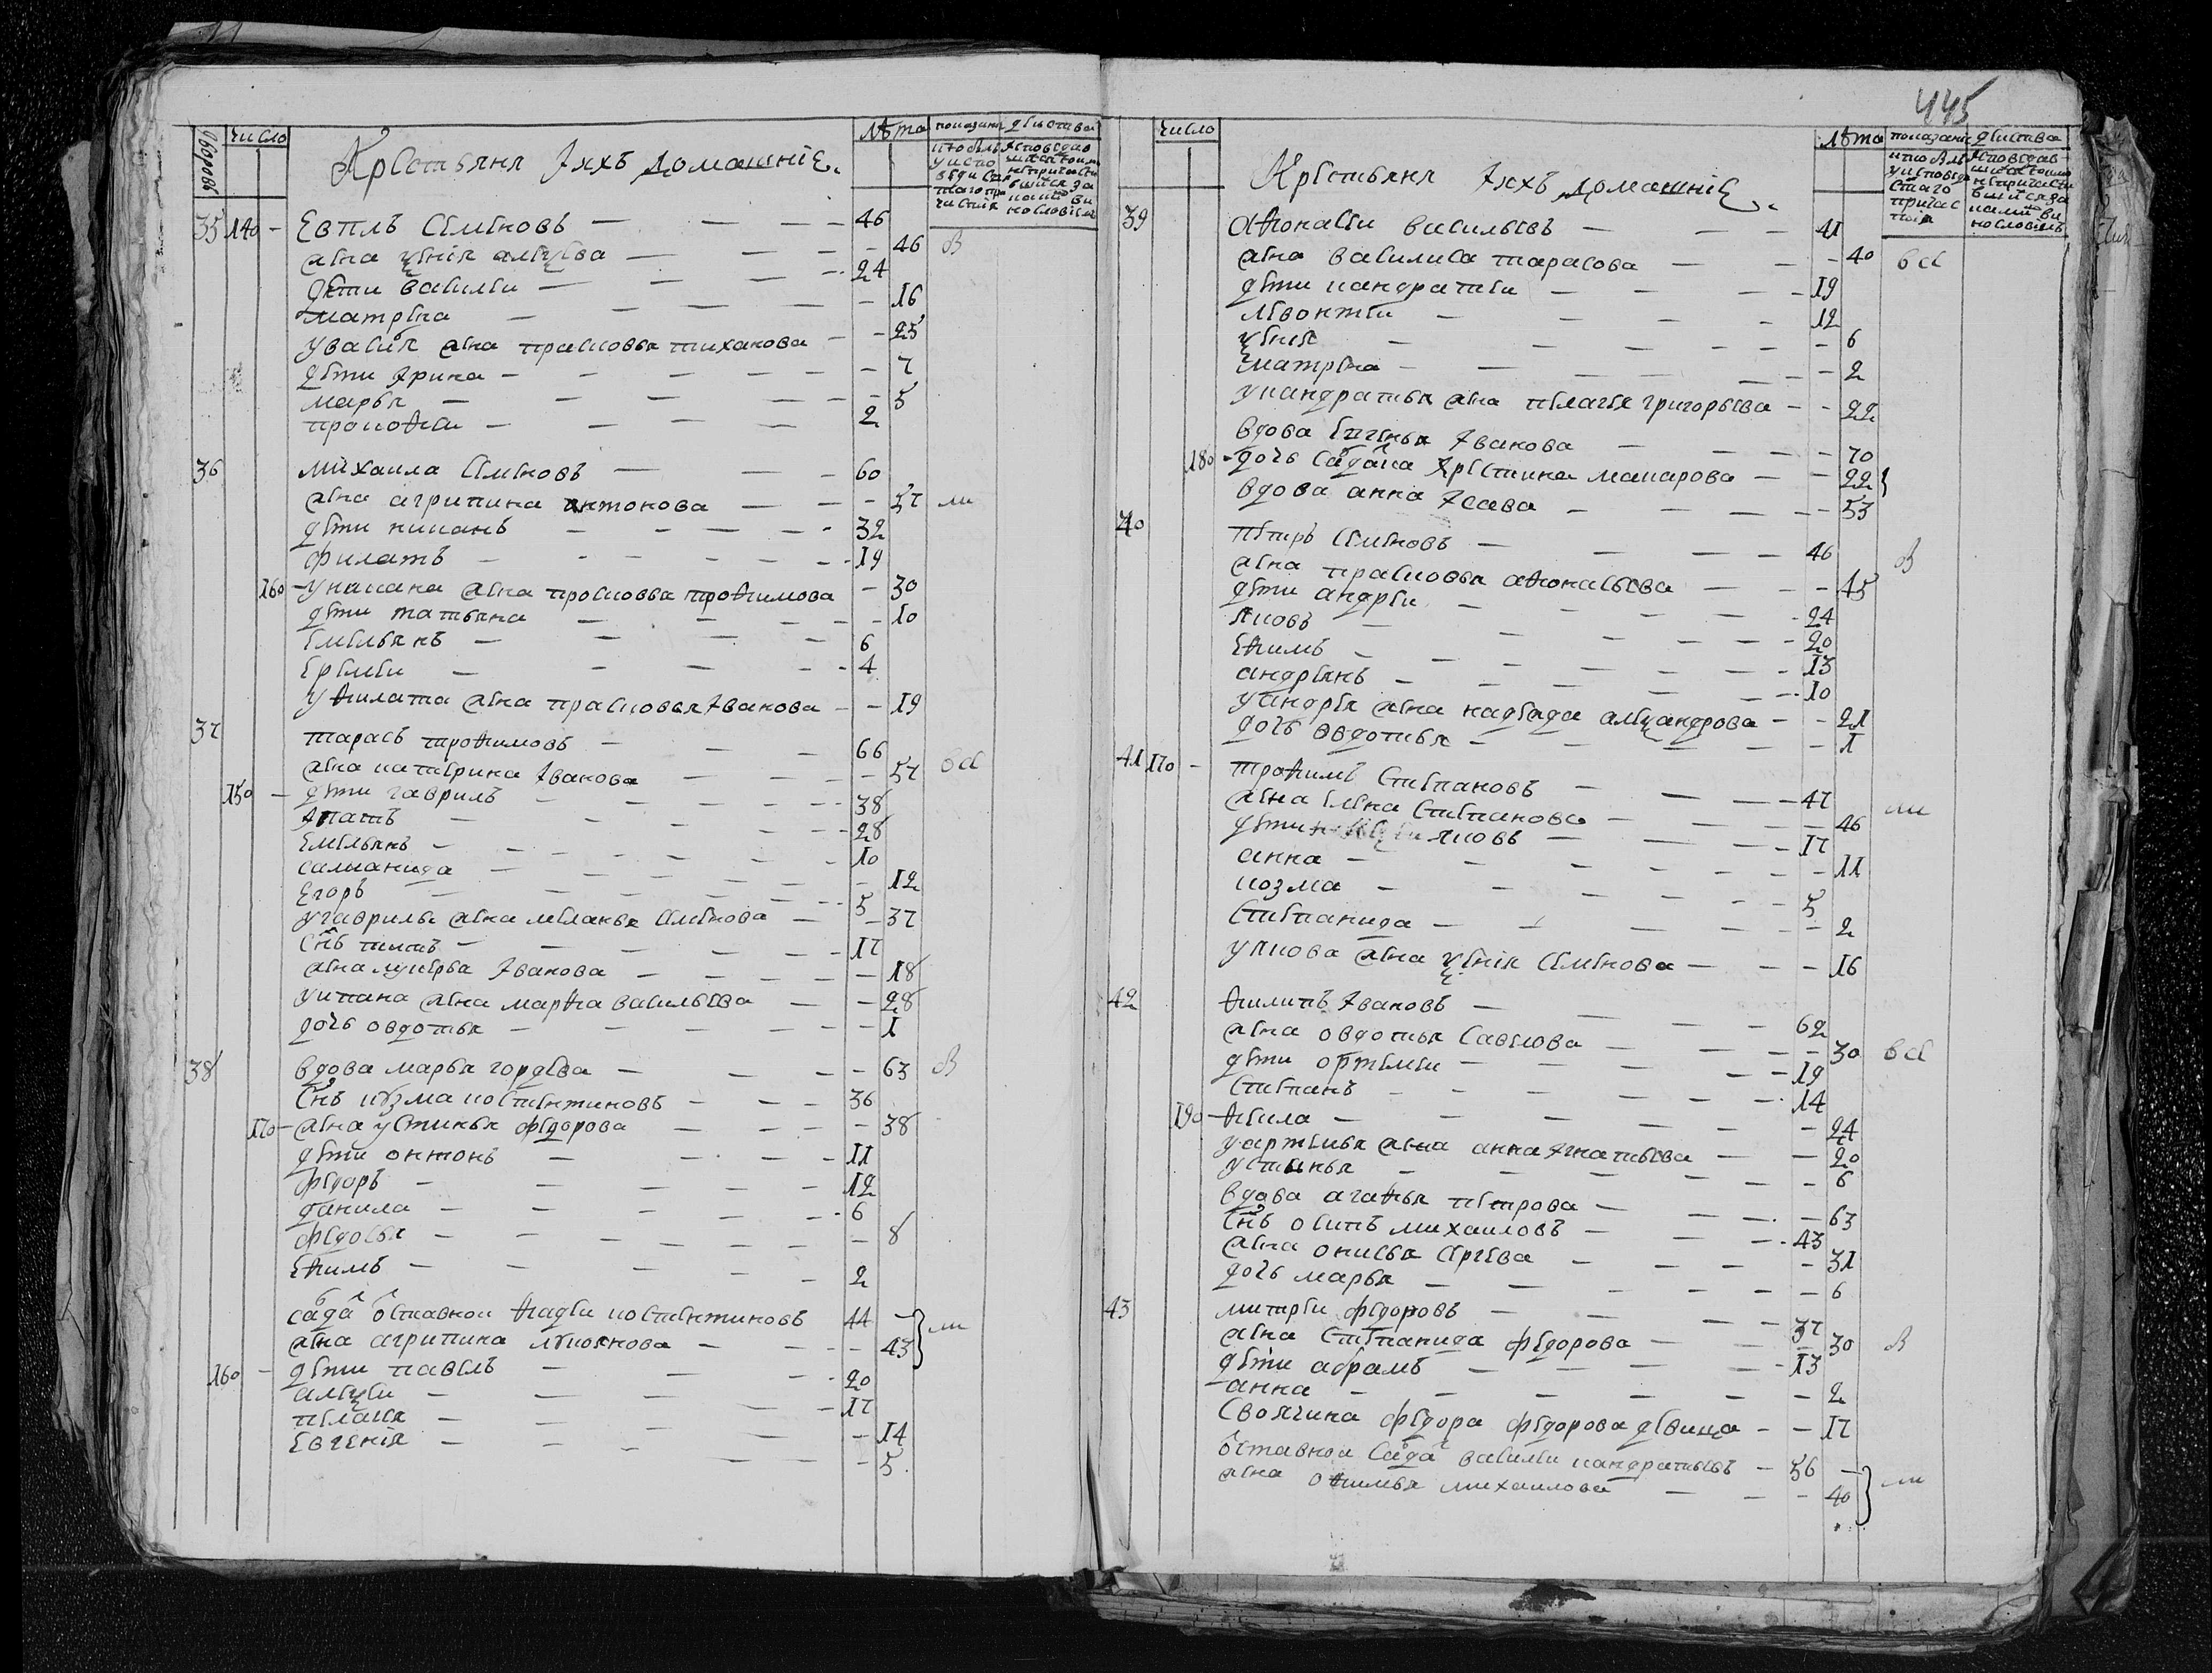 445
дворовъ число лѣта показание дѣйства
Крестьяня и ихъ домашние
35 140 Евплъ Семеновъ 46
жена ксения алексеева 46 в
дети василеи 24
матрена 16
у василя жена прасковья тиханова 25
дети ирина 7
марья 5
прокофеи 2
36 михаила Семеновъ 60
жена агрипина антонова 57 ли
дети никанъ 32
филатъ 19
160 жена просковья трофимова 30
дети татьяна 10
емельянъ 6
еремеи 4
у филата жена прасковья Iванова 19
37 тарасъ трофимовъ 66
жена катерина Iванова 57 вса
150 дети гаврилъ 38
Ипатъ 28
емельянъ 10
саламанида 12
егоръ 5
у гаврилы жена меланья Семенова 37
снъ титъ 17
жена лукерья Iванова 18
у ипата жена марфа васильева 28
дочь овдотья 1
38 вдова марья гордева 63 в
Снъ козма костентиновъ 36
170 жена устинья федорова 38
дети онтонъ 11
федоръ 12
данила 6
федосья 8
ефимъ 2
сада оставнои фадеи костентиновъ 44
жена агрипина 43 ли
160 дети павелъ 20
алексеи 17
пелагея 14
евгения 5
число лѣта показание дѣйства
Крестьяня и ихъ домашние
39 афонасеи васильевъ 41
жена василиса тарасова 40 вса
дети кандратеи 19
левонтеи 12
ксения 6
матрена 2
у кандратья жена пелагея григорьева 22
вдова Iванова 70
180 дочь садака христина макарова 22
вдова анна Iсаева 53
40 петръ Семеновъ 46 в
жена прасковья афонасьева 45
дети андреи 24
яковъ 20
ефимъ 13
андреянъ 10
у андрея жена надежда александрова 21
дочь овдотья 1
41 170 трофимъ Степановъ 47
жена елена Степанова 46 ли
дети яковъ 17
анна 11
козма 5
Степанида 2
у якова жена ксения Семенова 16
42 филипъ Iвановъ 62
жена овдотья Савелова 30 вса
дети ортемеи 19
Степанъ 14
190 фекла 24
у артемья жена анна Iгнатьева 20
устинья 6
вдова агафья петрова 63
Снъ осипъ михаиловъ 43
жена онисья Сергева 31
дочь марья 6
43 митреи федоровъ 37
жена Степанида федорова 30 в
дети абрамъ 13
анна 2
Своячина федора федорова девица 17
оставнои сада василеи кандратьевъ 56
жена офимья михаилова 40 ли